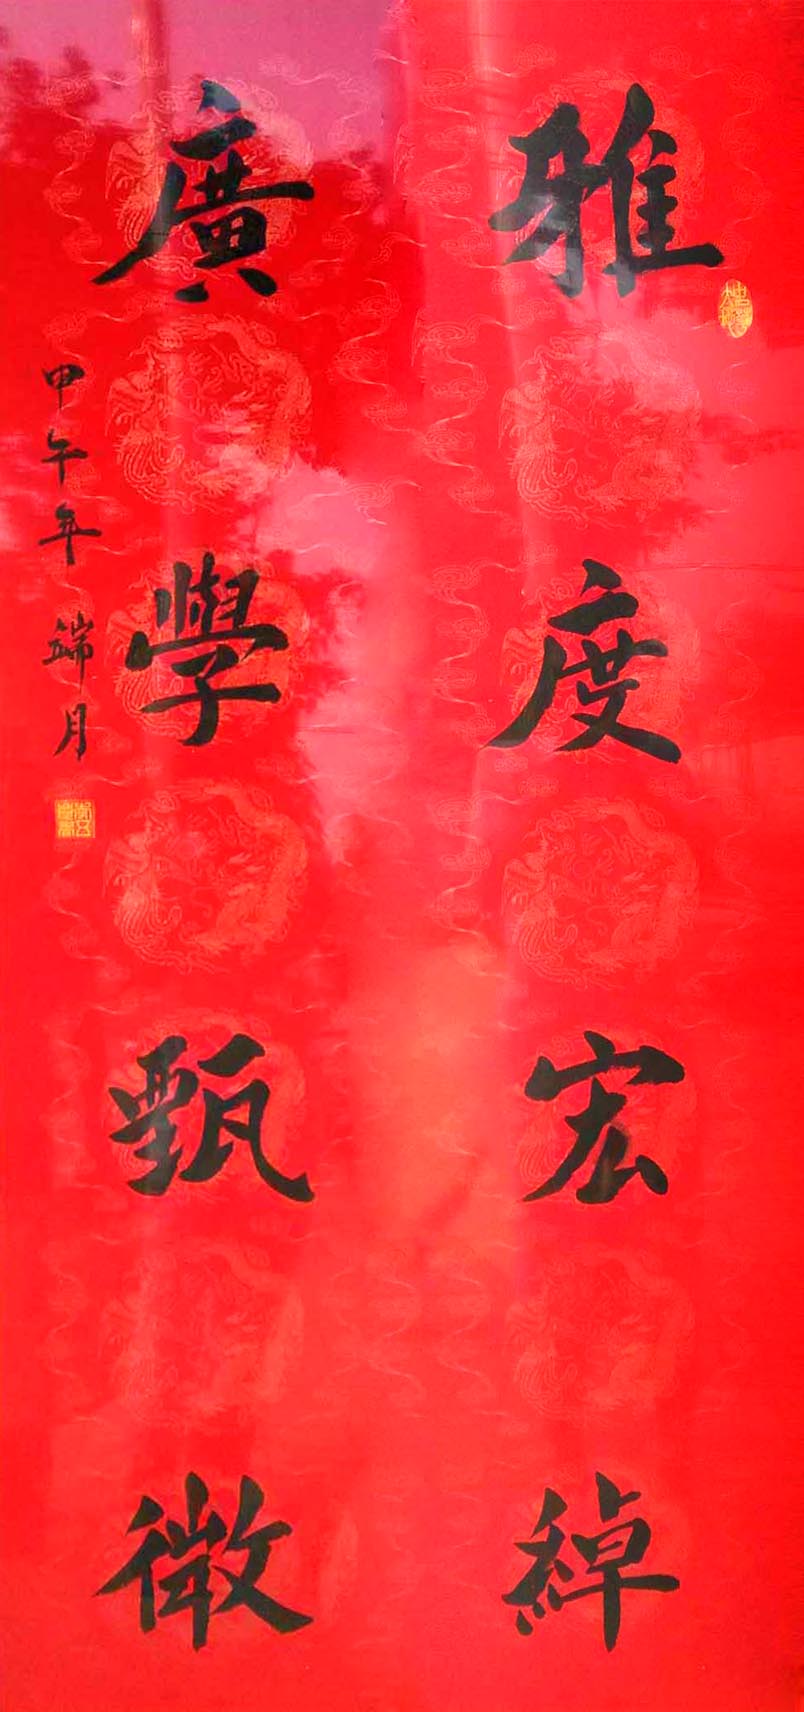 雅度宏綽
廣學甄微
甲午年端月